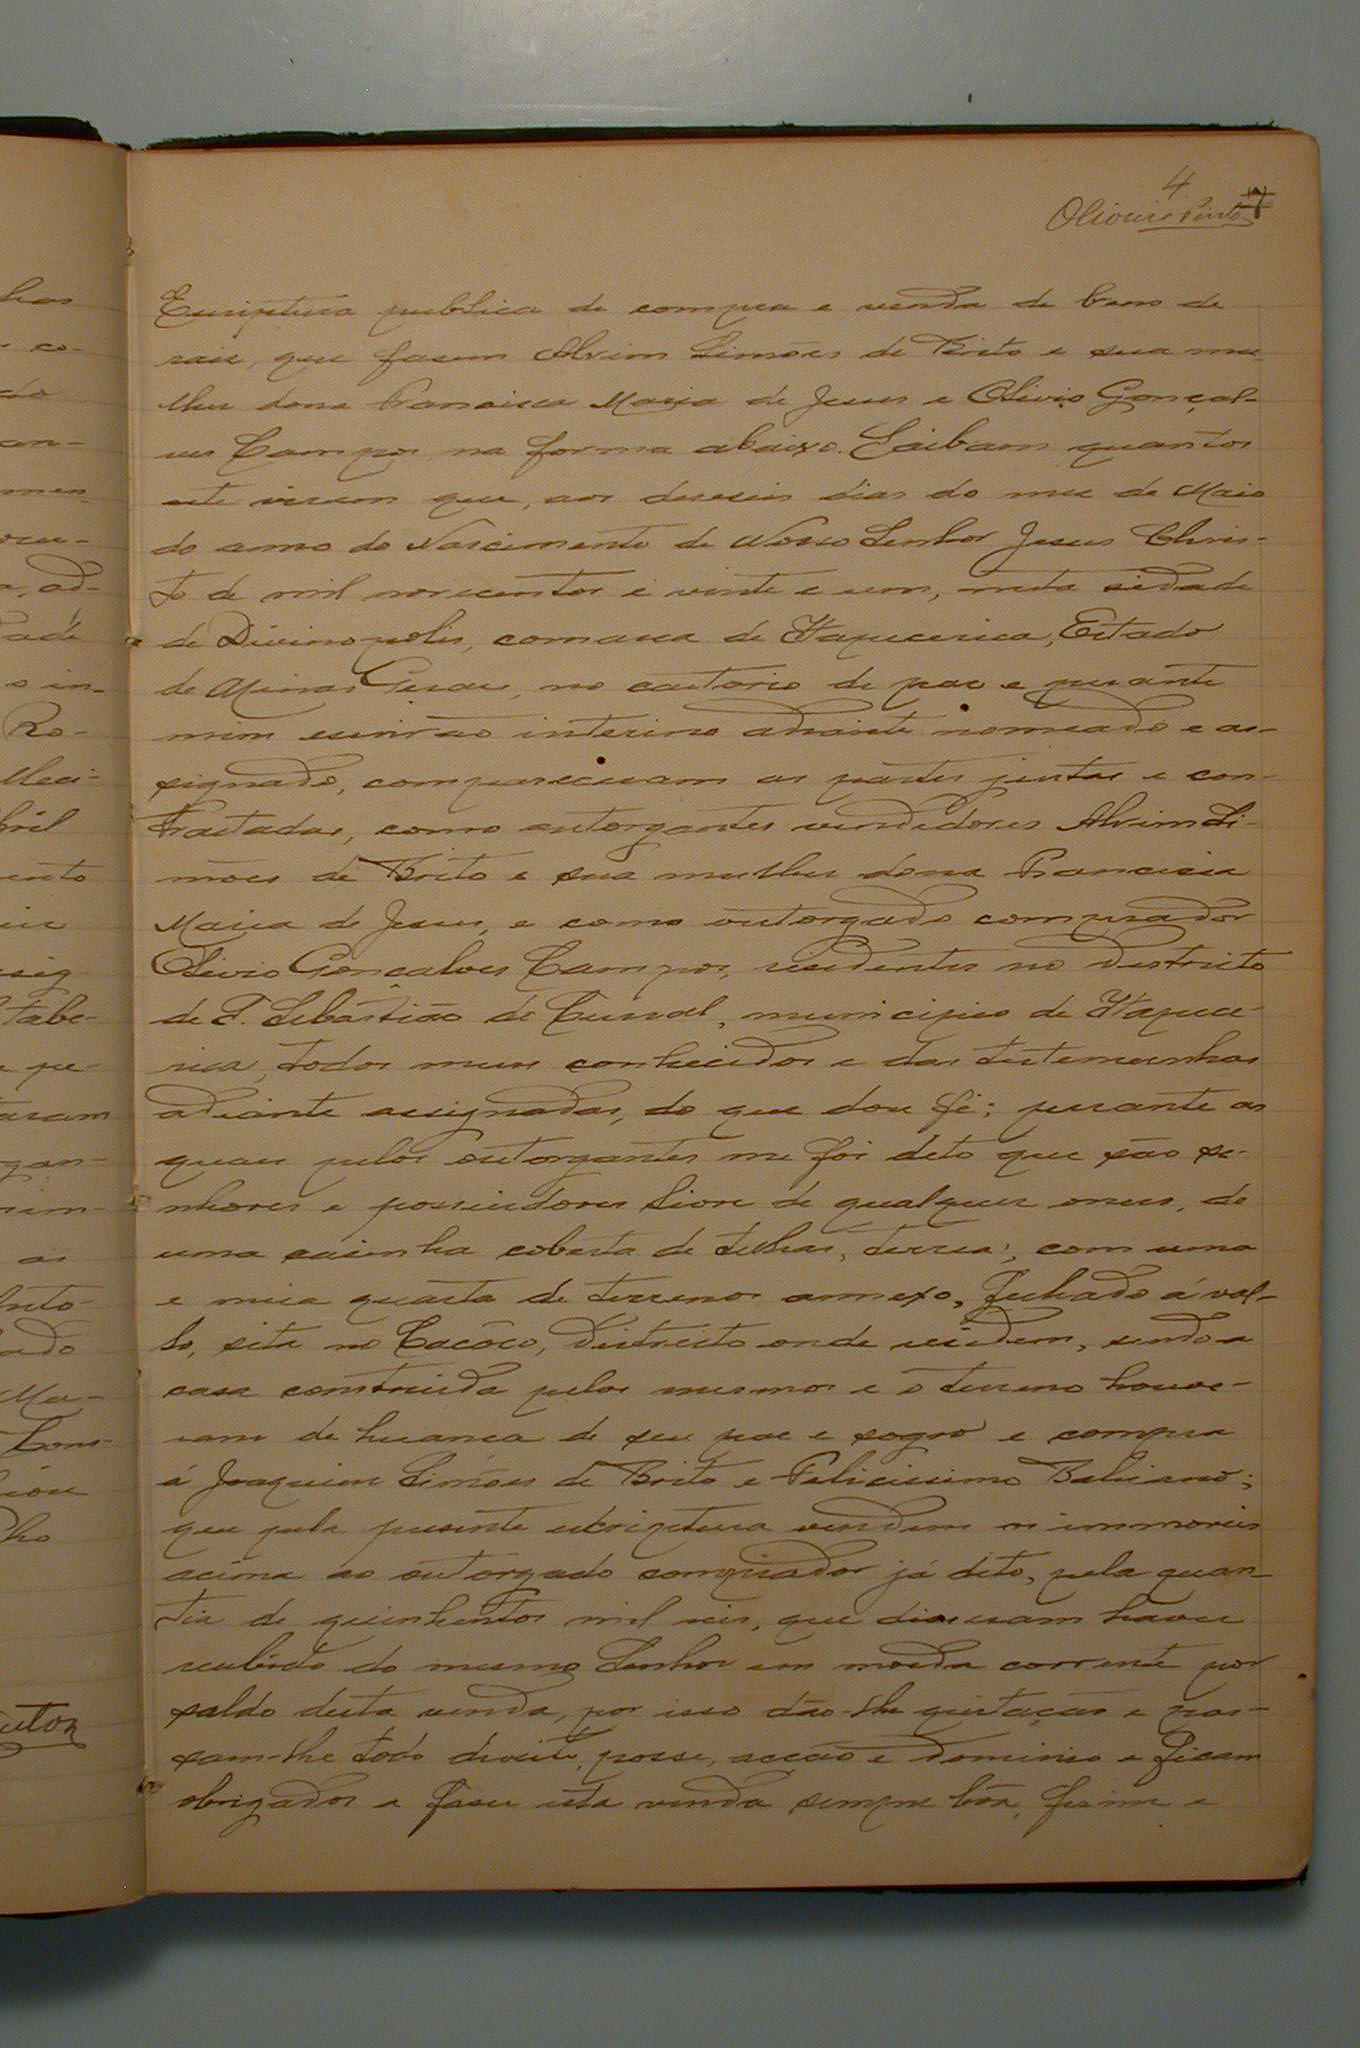 4
7
Olivio Pinto
has
co-
do
con-
men-
ad-
o in-
Ro-
Meci-
bril
ento
sig
tabe-
e pe-
aram
gan-
as
nto-
ado
Ma-
Com-
ho
utor
Escriptura publica de compra e venda de bens de
raiz, que fasem Alvim Simões de Brito e sua mu
lher dona Francisca Maria de Jesus e Olivio Gonçal-
ves Campos, na forma abaixo. Saibam quantos
este virem que, aos deseseis dias do mez de Maio
do anno do Nascimento de Nosso Senhor Jesus Chris-
to de mil novecentos e vinte e um, nesta cidade
de Divinopolis, comarca de Itapecerica, Estado
de Minas Geraes, no cartorio de paz e perante
mim escrivão interino adiante nomeado e as-
signado, compareceram as partes justas e con-
tractadas, como outorgantes vendedores Alvim Si-
mões de Brito e sua mulher dona Francisca
Maria de Jesus, e como outorgado comprador
Olivio Gonçalves Campos, residentes no districto
de S. Sebastião do Curral, municipio de Itapece-
rica, todos meus conhecidos e das testemunhas
adiante assignadas, do que dou fé; perante as
quaes pelos outorgantes me foi dito que são se-
nhores e possuidores livre de qualquer onus, de
uma casinha coberta de telhas, terrea, com uma
e meia quarta de terrenos annexo, fechado á val-
lo, sita no Cacôco, Districto onde residem, sendo a
casa construida pelos mesmos e o terreno houve-
ram de herança de seu pae e sogro e compra
á Joaquim Simões de Brito e Felicissimo Bahiano;
que pela presente escriptura vendem os immoveis
acima ao outorgado comprador já dito, pela quan-
tia de quinhentos mil reis, que disseram haver
recebido do mesmo Senhor em moeda corrente por
saldo desta venda, por isso dão-lhe quitação e pas-
sam-lhe todo direito, posse, acção e dominio e ficam
obrigados a faser esta venda sempre bôa, firme e